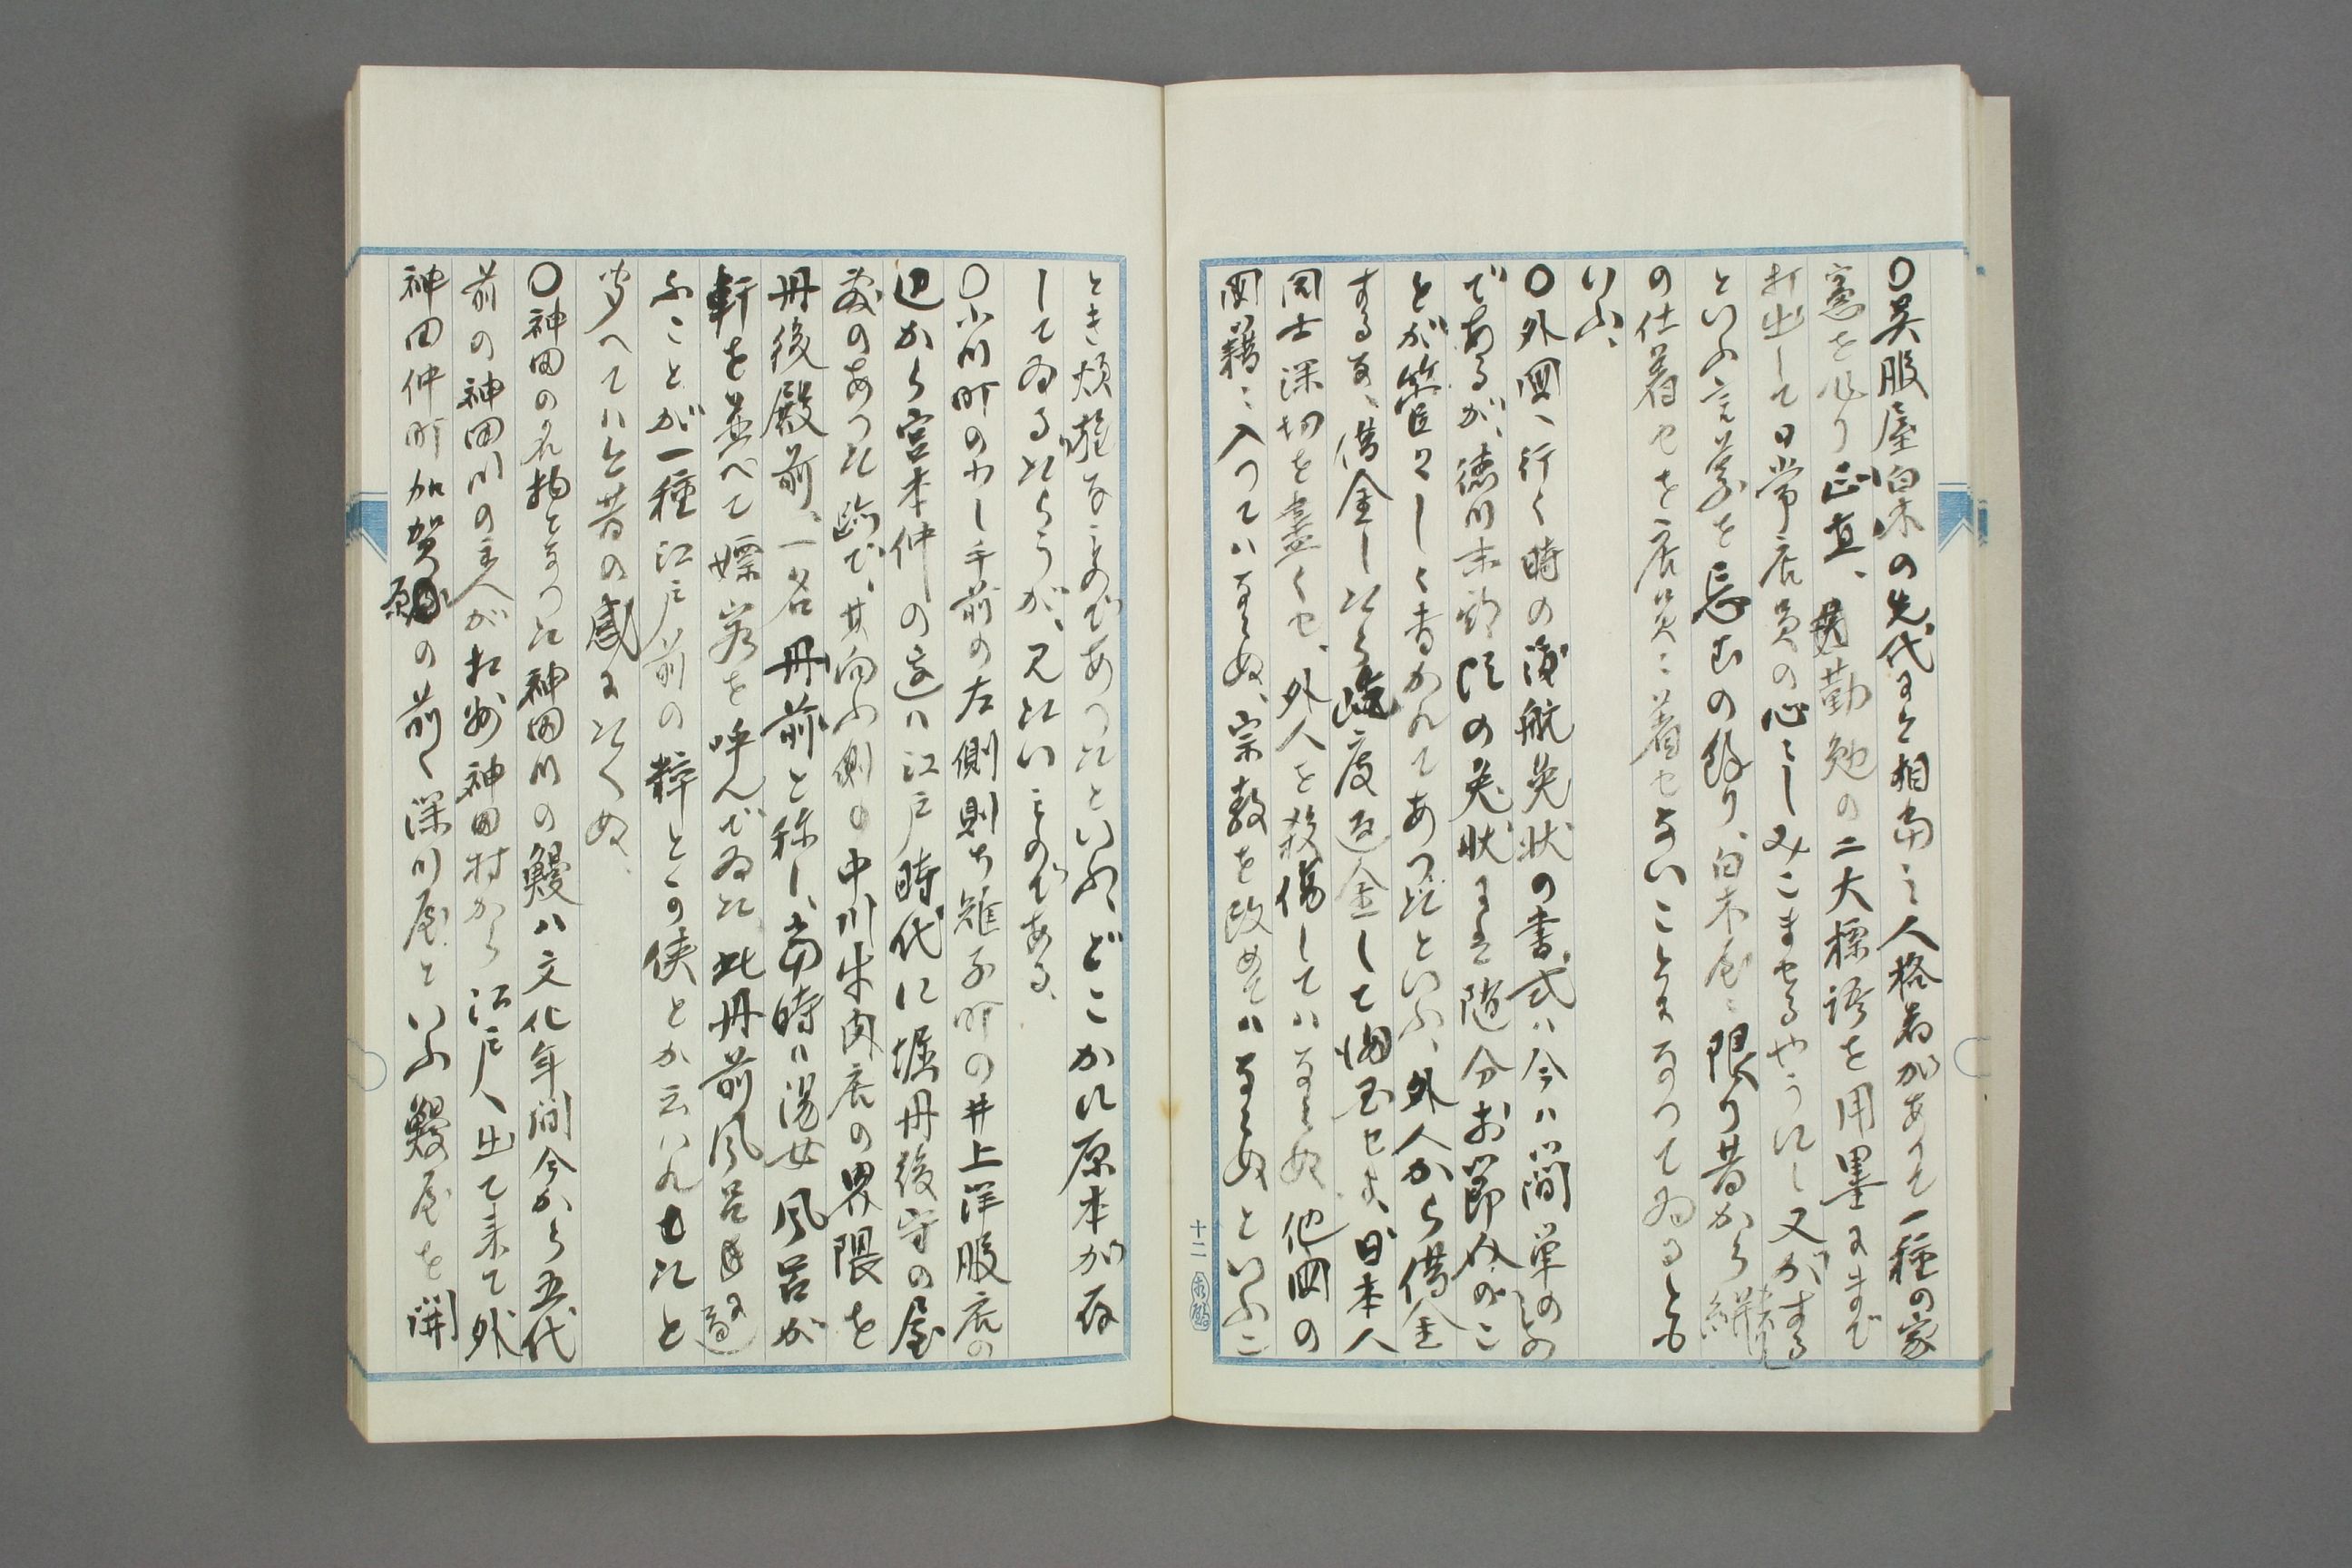 〇呉服屋白木の先代にも相当な人格者があつて一種の家
憲を作り正直、勤勉の二大標語を用墨にまで
打出して日常店員の心にしみこませるやうにし又がする
といふ言葉を忌むの餘り、白木屋に限り昔から絣
の仕着せを店員に着せないことになつてゐるとも
いふ、
〇外国へ行く時の渡航免状の書式ハ今ハ簡単のもの
であるが、徳川末期頃の免状にハ随分お節介のこ
とが管々しく書かれてあつたといふ、外人から借金
するな、借金したら屹度返金して帰国せよ、日本人
同士深切を盡くせ、外人を殺傷してハならぬ、他国の
国籍に入つてハならぬ、宗教を改めてハならぬといふこ
十二
とき煩雑なものであつたといふ、どこかに原本が存
してゐるだらうが、見たいものである、
〇小川町の少し手前の左側則ち雉子町の井上洋服店の
辺から宮本仲の辺ハ江戸時代に堀丹後守の屋
敷のあつた跡で、其向ふ側の中川牛肉店の界隈を
丹後殿前、一名丹前と称し、当時ハ湯女風呂が
軒を並べて嫖客を呼んでゐた、此丹前風呂に通
ふことが一種江戸前の粋とか侠とか云ハれたと
聞へてハ今昔の感に堪へぬ、
〇神田の名物となつた神田川の鰻ハ文化年間今から五代
前の神田川の主人が相州神田村から江戸へ出て来て外
神田仲町加賀原の前へ深川屋といふ鰻屋を開